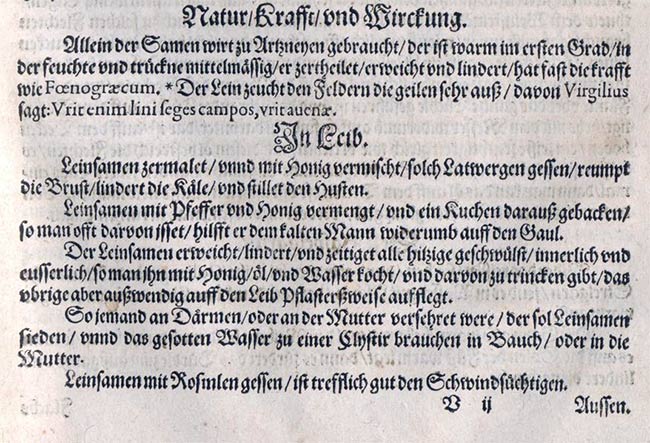 Natur/Krafft/vnd Wirckung.
Allein der Samen wirt zu Artzneyen gebraucht/der ist warm im ersten Grad/in
der feuchte vnd trückne mittelmässig/er zertheilet/erweicht vnd lindert/hat fast die krafft
wie Fœnogræcum. * Der Lein zeucht den Feldern die geilen sehr auß/ davon Virgilius
sagt: Vrit enim lini seges campos, vrit auenæ.
In Leib.
Leinsamen zermalet/ vnnd mit Honig vermischt/solch Latwergen gessen/reumpt
die Brust/lindert die Käle/ vnd stillet den Husten.
Leinsamen mit Pfeffer vnd Honig vermengt/ vnd ein Kuchen darauß gebacken/
so man offt darvon isset/ hilfft er dem kalten Mann widerumb auff den Gaul.
Der Leinsamen erweicht/lindert/vnd zeitiget alle hitzige geschwülst/innerlich vnd
eusserlich/so man jhn mit Honig/öl/ vnd Wasser kocht/ vnd darvon zu trincken gibt/das
vbrige aber außwendig auff den Leib Pflastersßweise aufflegt.
So jemand an Därmen/oder an der Mutter versehret were / der sol Leinsamen
sieden / vnnd das gesotten Wasser zu einer Clystir brauchen in Bauch/ oder in die
Mutter.
Leinsamen mit Rosinlen gessen/ist trefflich gut den Schwindsüchtigen.
V ij Aussen.